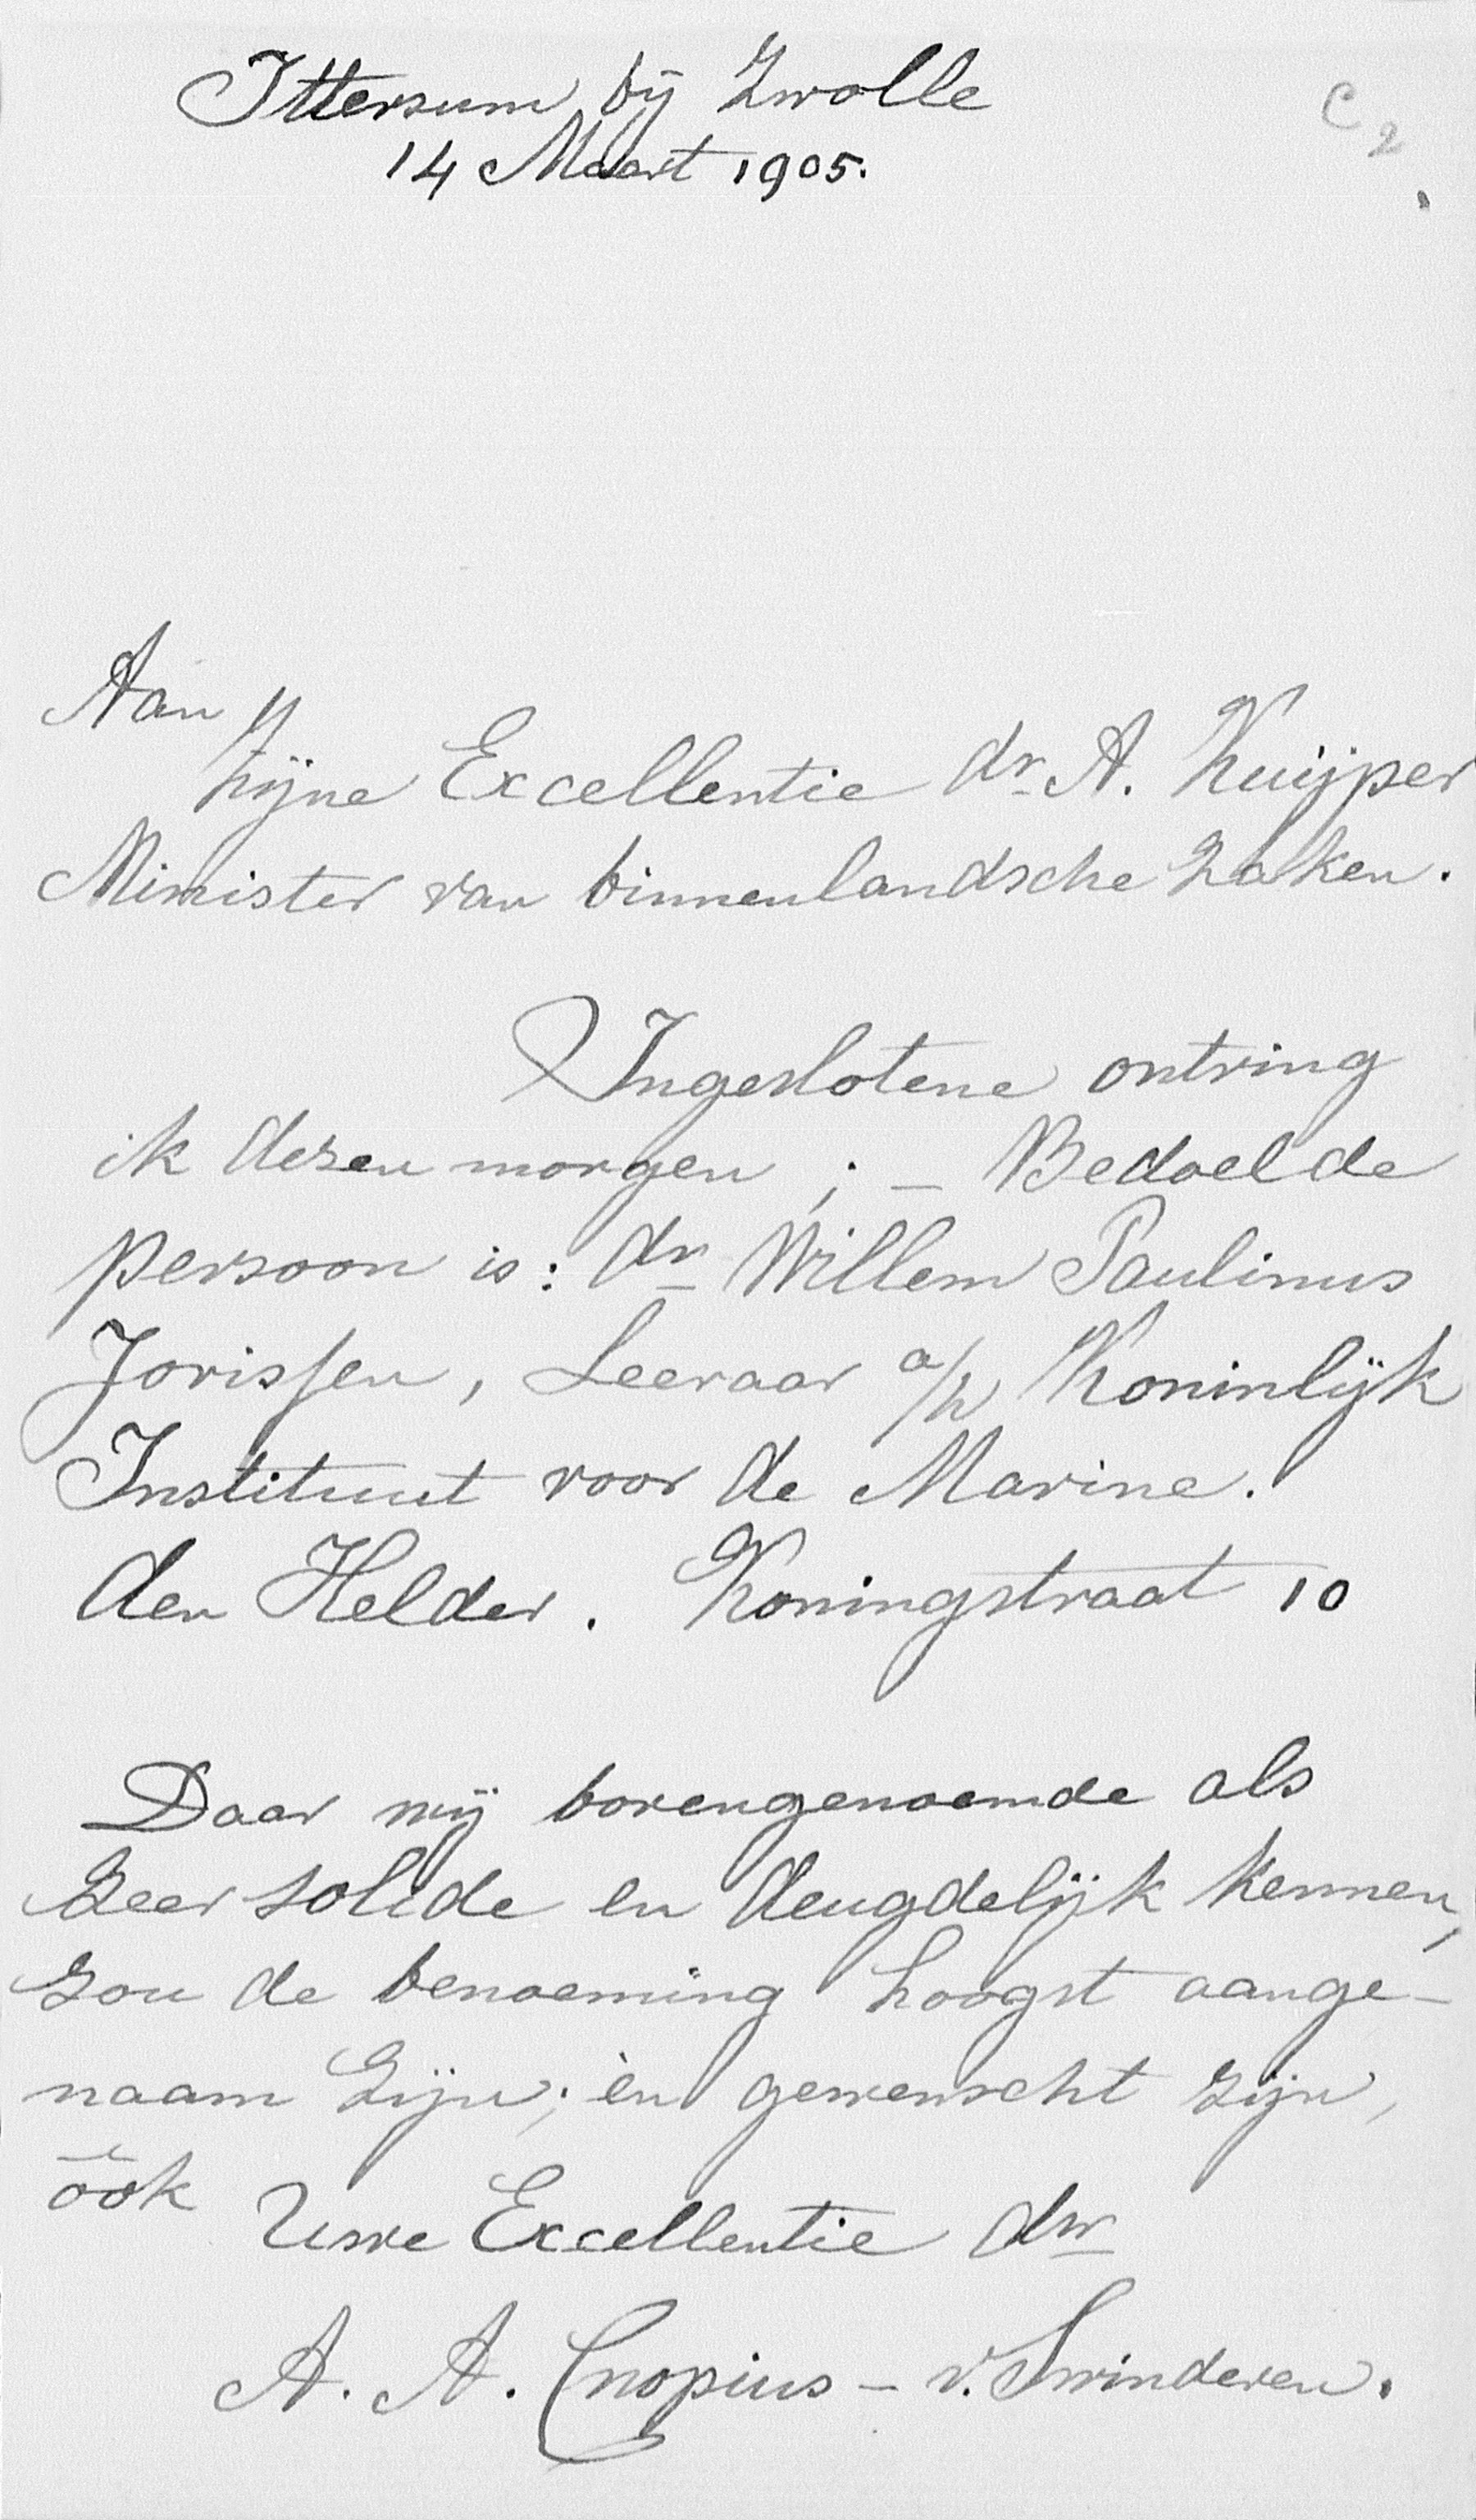 Ittersum bij Zwolle
C 2
14 Maart 1905.
Aan
Zijne Excellentie dr A. Kuijper
Minister van binnenlandsche Zaken.
Ingeslotene ontving
ik dezen morgen ; — Bedoelde
persoon is: dr Willem Paulinus
Jorissen, Leeraar a/h Koninlijk
Instituut voor de Marine.
den Helder. Koningstraat 10
Daar mij bovengenoemde als
zeer solide en deugdelijk kennen,
zou de benoeming hoogst aange-
naam zijn; èn gewenscht zijn,
óók Uwe Excellentie dw
A. A. Cnopius - v. Swinderen.